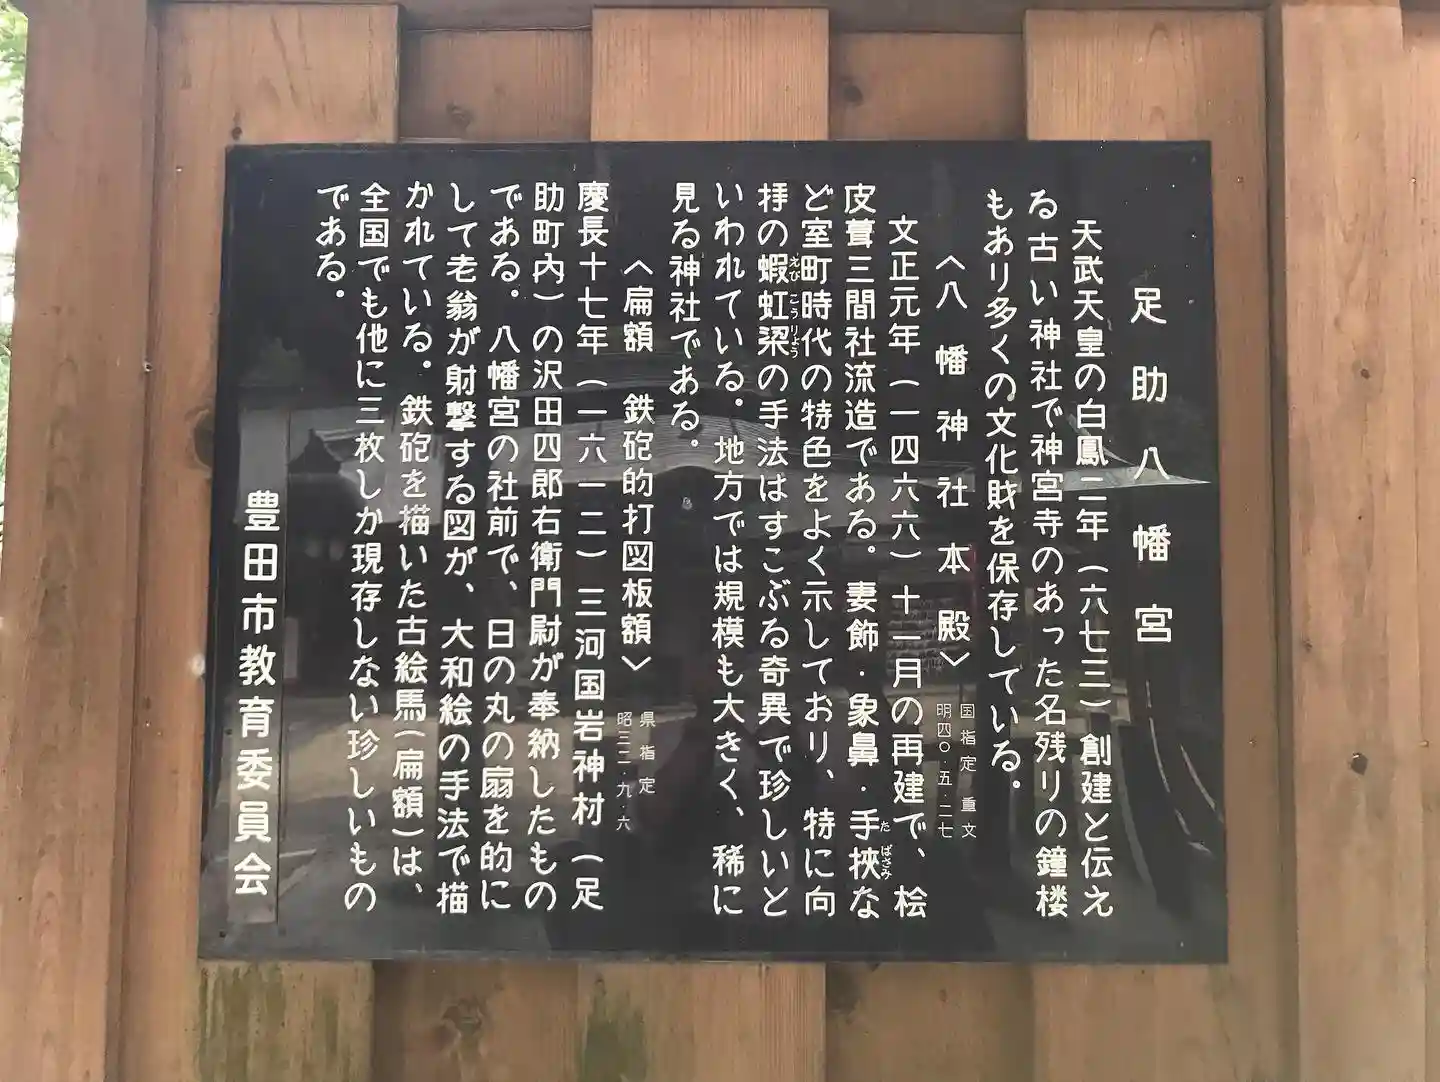 足助八幡宮
天武天皇の白鳳二年(六七三)創建と伝え
る古い神社で神宮寺のあった名残りの鐘楼
もあり多くの文化財を保存している。
〈八幡神社本殿〉 国指定 重文
明四〇・五・二七
文正元年(一四六六)十一月の再建で、桧
皮葺三間社流造である。妻飾・象鼻・手挾な
ど室町時代の特色をよく示しており、特に向
拝の蝦虹梁の手法はすこぶる奇異で珍しいと
いわれている。地方では規模も大きく、稀に
見る神社である。
〈扁額 鉄砲的打図板額〉 県指定
昭三二・九・六
慶長十七年(一六一二)三河国岩神村(足
助町内)の沢田四郎右衛門尉が奉納したもの
である。八幡宮の社前で、日の丸の扇を的に
して老翁が射撃する図が、大和絵の手法で描
かれている。鉄砲を描いた古絵馬(扁額)は、
全国でも他に三枚しか現存しない珍しいもの
である。
豊田市教育委員会